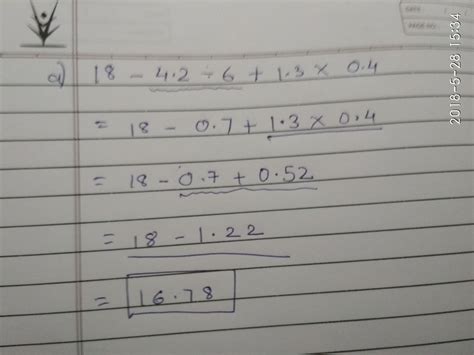 DATE:
PAGE NO.:
2018-5-28 15:34
a) 18 - 4.2 ÷ 6 + 1.3 × 0.4
= 18 - 0.7 + 1.3 × 0.4
= 18 - 0.7 + 0.52
= 18 - 1.22
= 16.78